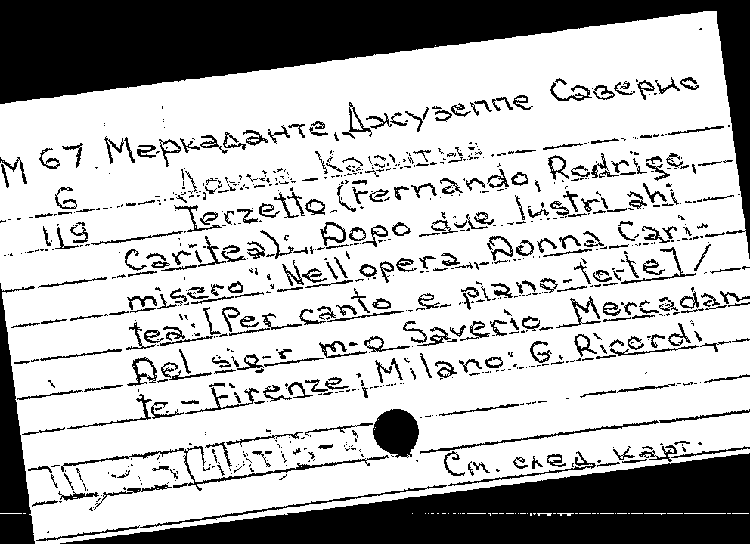 М 67 Меркаданте, Джузеппе Саверио
6 Донна Каритеа
119 Terzetto (Fernando, Rodrigo,
Caritea): „Dopo due lustri ahi
misero": Nell'opera „Donna Cari-
tea": [Per canto e piano-forte] /
Del sig-r m-o Saverio Mercadan-
te – Firenze; Milano: G. Ricordi,
См. след. карт.